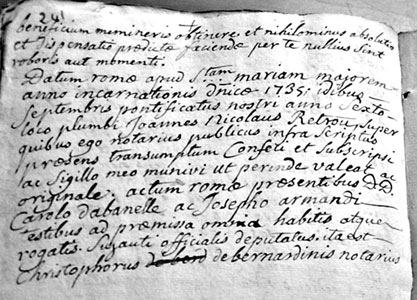 24
beneficium memineris obtinere et nihilominus absolutio
et dispensatio predicte faciende per te nullius sint
roboris aut momenti.
Datum romæ apud Stam mariam majorem
anno incarnationis dnicæ 1735 idibus
Septembris pontificatus nostri anno Sexto
loco plumbi Joannes Nicolaus Retrou Super
quibus ego notarius publicus infra Scriptus
presens transumptum Confeci et Subscripsi
ac Sigillo meo munivi ut perinde valeat ac
originale, actum romæ presentibus D.D.
Carolo dabanelle ac Josepho armandi
testibus ad præmissa omnia habitis atque
rogatis. officialis deputatus. ita est
Christophorus de bernardinis notarius